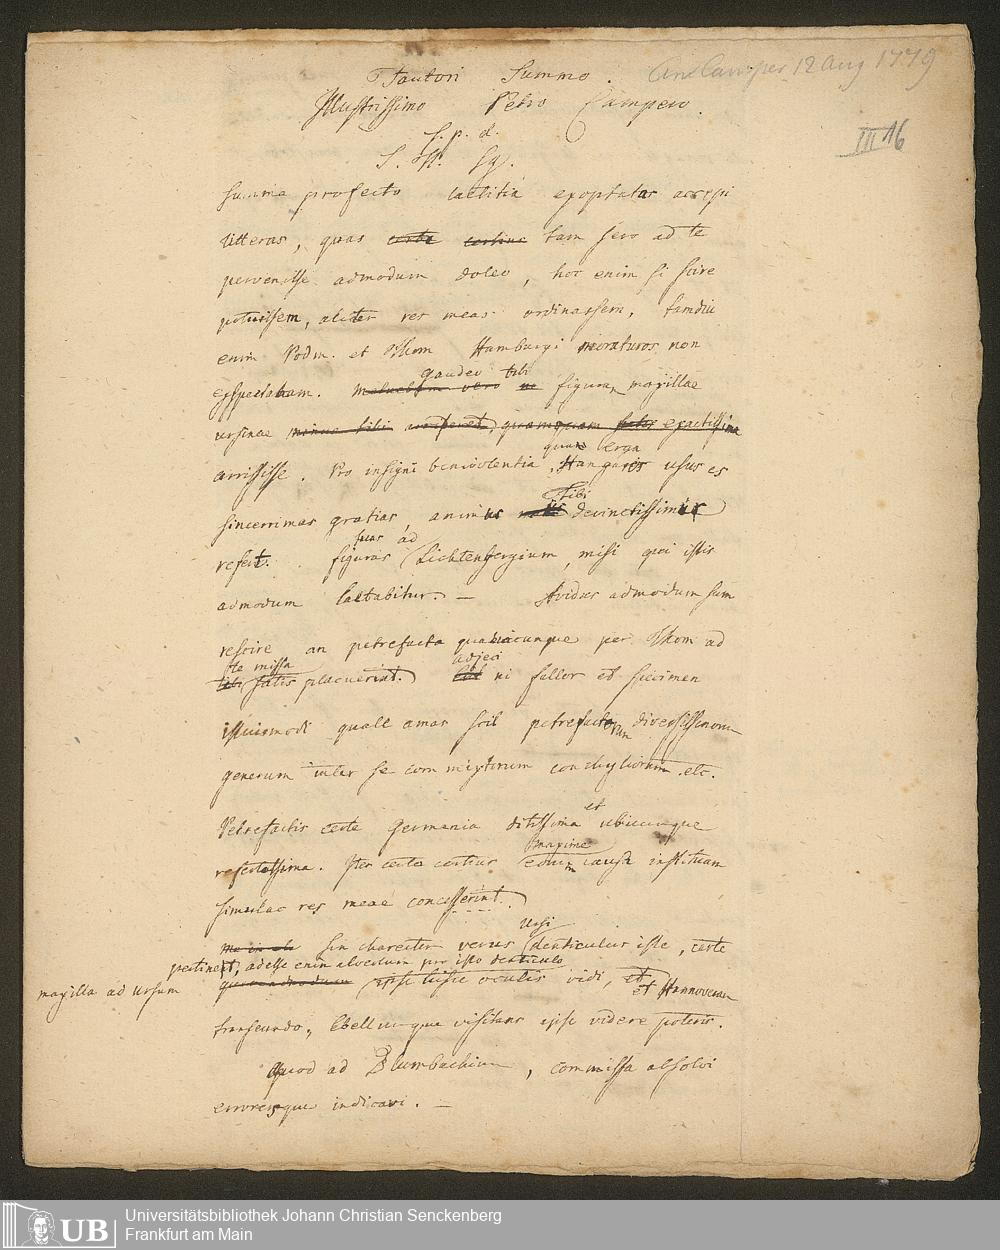 Fautori Summo. An Camper 12 Aug 1779
Illustrissimo Petro Campero.
III 16
S. p. d.
S. Th. Sg.
Summa profecto laetitia exoptatas accepi
litteras, quas certe tam sero ad te
pervenisse admodum doleo, hoc enim si scire
potuissem, aliter res meas ordinassem, tamdiu
enim Podm. et Thom Hamburgi moraturos non
exspectabam. gaudeo tibi figuram maxillae
ursinae
arrisisse. Pro insigni benivolentia, quam erga Hangaris usus es
sincerrimas gratias, animus tibi devinctissimus
refert. figuras suas ad Lichtenbergium, misi qui istis
admodum laetabitur. — Avidus admodum sum
rescire an petrefacta quaecunque per Thom ad
te missa satis placuerint. adjeci ni fallor et specimen
istiusmodi quale amas scil petrefactorum diversissimorum
generum inter se commixtorum conchyliorum etc.
Petrefactis certe Germania ditissima et ubicunque
refertissima. Iter certo certius maxime causa instituam
simulac res meae concesserint.
sin character verus Ursi denticulus iste, certe
maxilla ad ursum pertinet, adesse enim alveolum pro isto denticulo
ipse hisce oculis vidi, et Hannoveram
transeundo, Ebellumque visitans ipse videre poteris.
Quod ad Blumbachium, commissa absolvi
erroresque indicavi. —
UB
Universitätsbibliothek Johann Christian Senckenberg
Frankfurt am Main